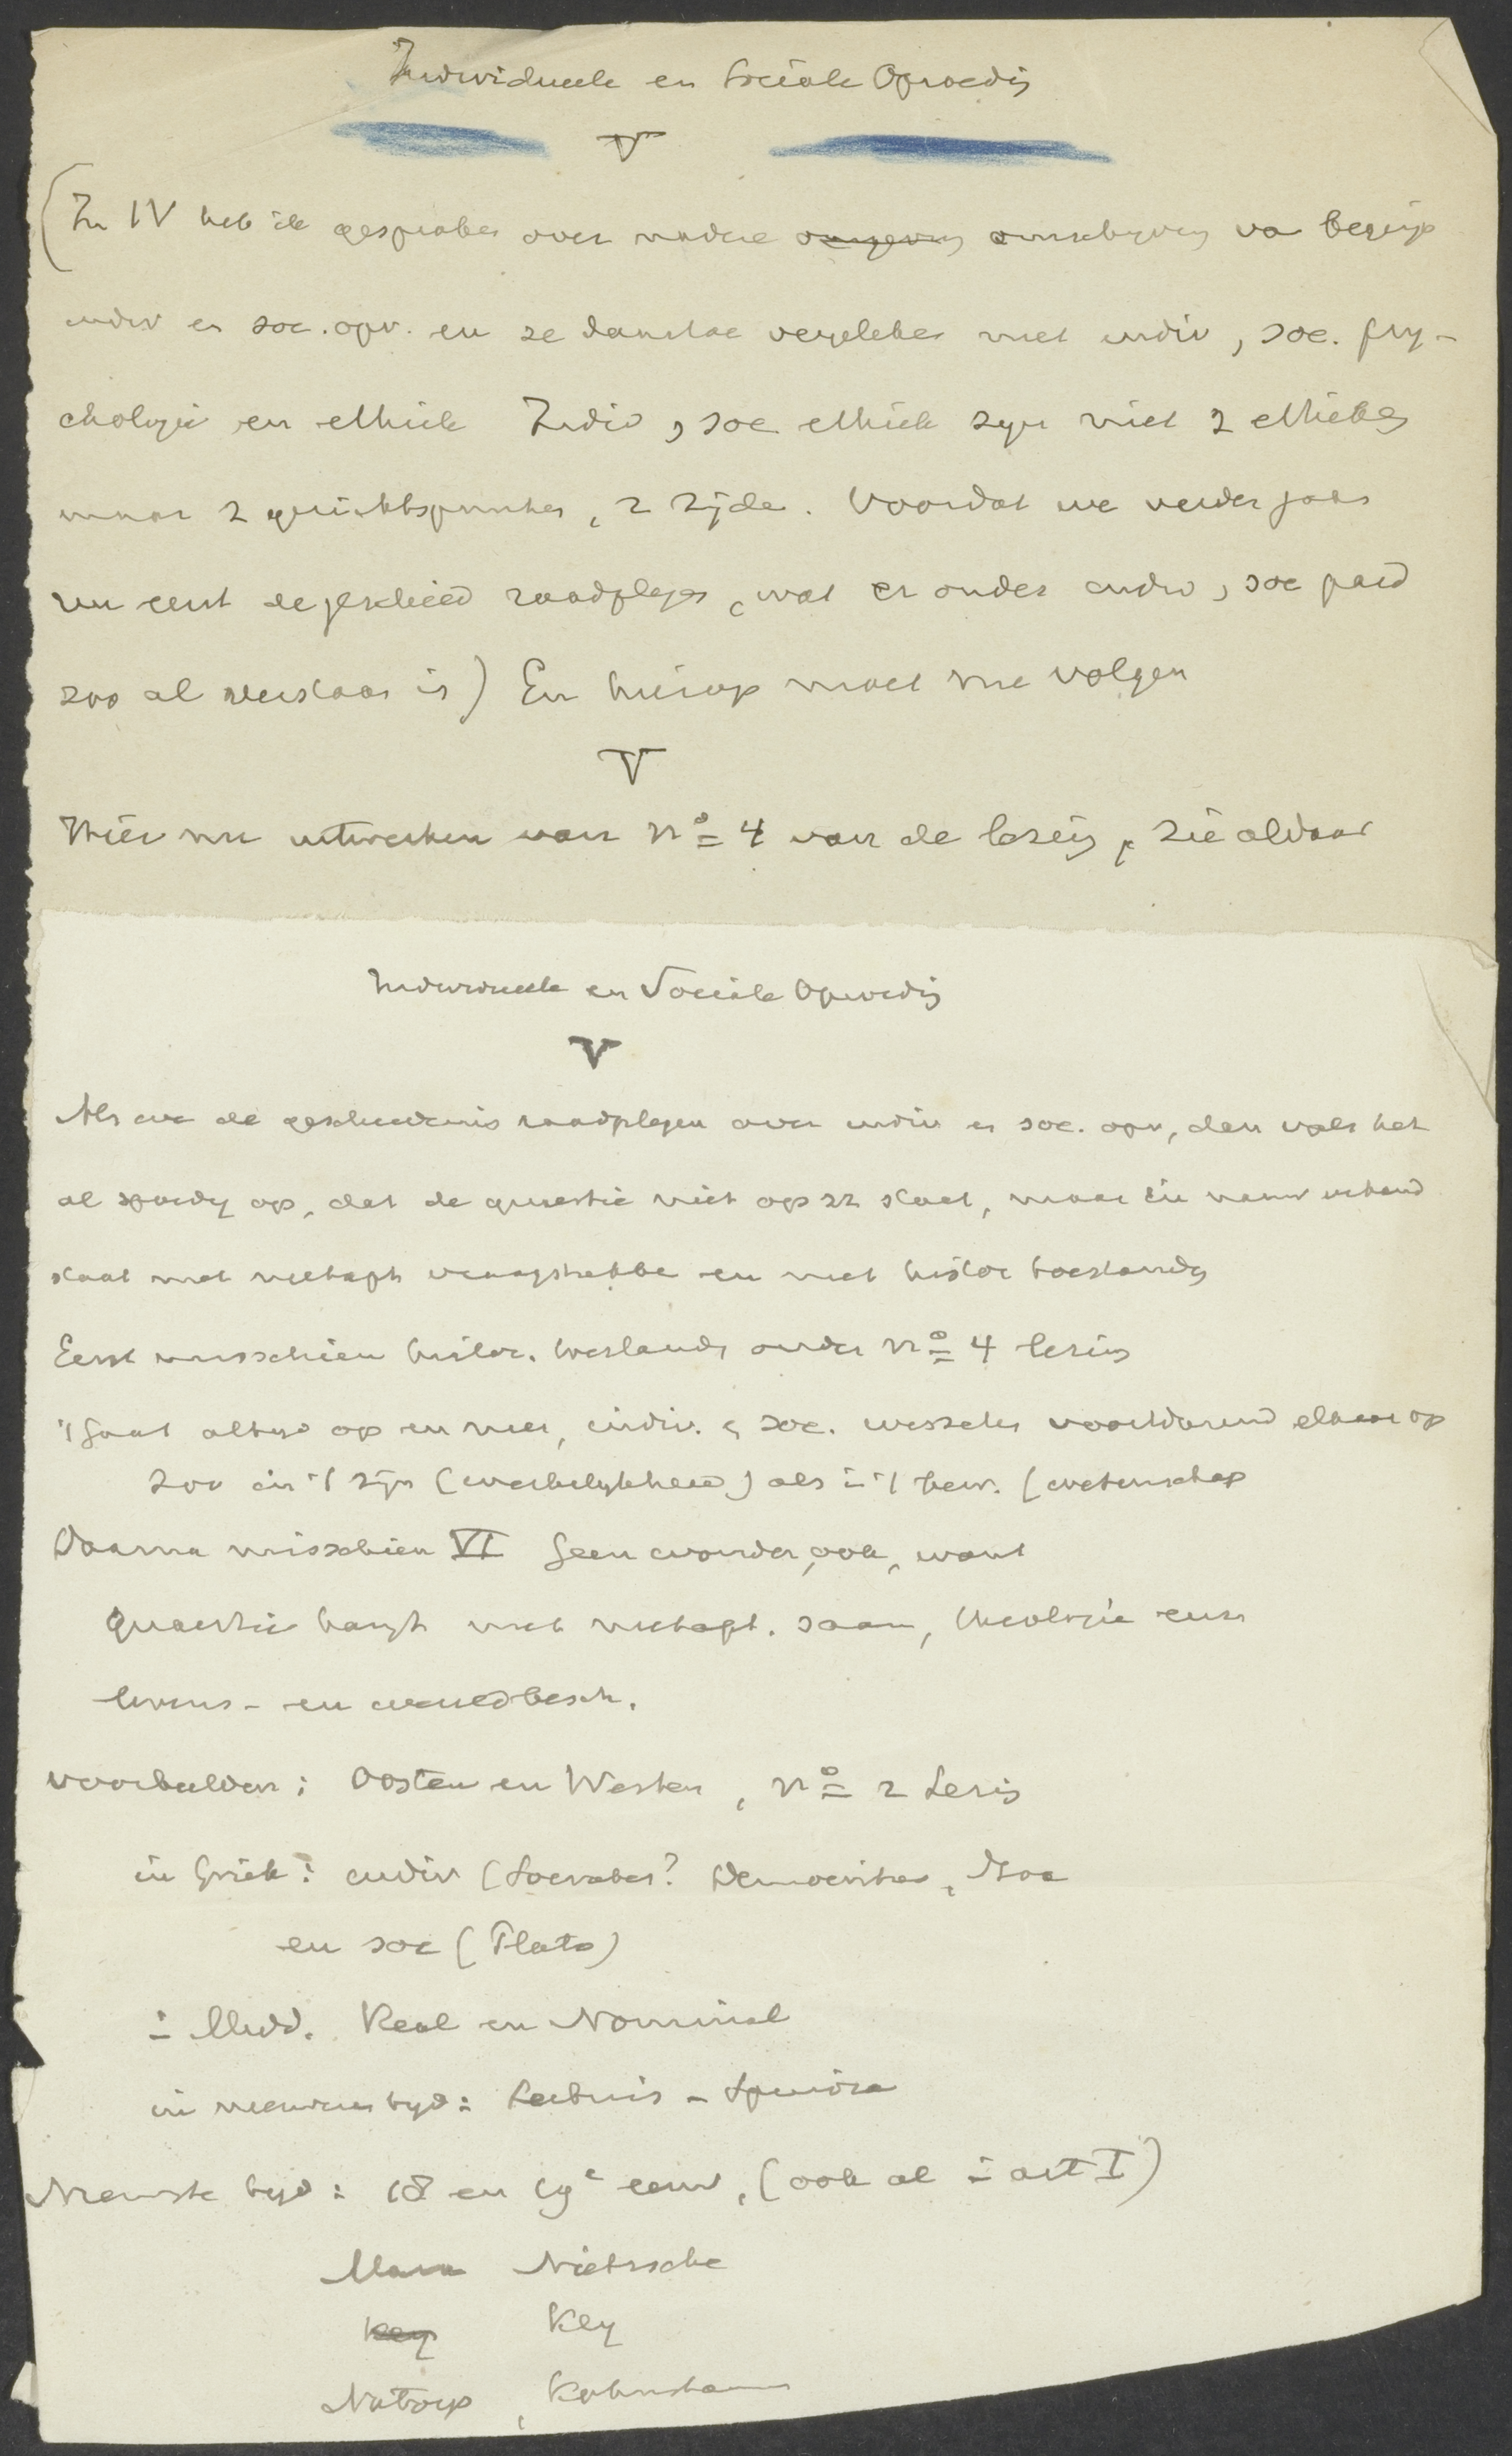 Individueele en Sociale Opvoedig
V
(In IV heb ik gesproken over nadere omgeving omschrijving va begrip
indiv en soc. opv. en ze daartoe vergeleken met indiv, soc. psy-
chologie en ethiek Indiv, soc ethiek zijn niet 2 ethieken
maar 2 gezichtspunten, 2 zijde. Voordat we verder gaan
nu eerst de geschied raadplegen, wat er onder indiv, soc paed
zoo al verstaan is) En hierop moet nu volgen
V
Hier nu uitwerken van No 4 van de lezing, zie aldaar
Individueele en Sociale Opvoedig
V
Als we de geschiedenis raadplegen over indiv en soc. opv, dan valt het
al spoedig op, dat de quaestie niet op zz staat, maar in nauw verband
staat met metaph vraagstukke en met histor toestandg
Eerst misschien histor. toestandg onder No 4 lezing
't Gaat altijd op en neer, indiv. en soc. wisselen voortdurend elkaar op
zoo in 't zijn (werkelijkheid) als i 't bew. (wetenschap
Daarna misschien VI Geen wonder, ook, want
Quaestie hangt met metaph. saam, theologie enz
levens- en wereldbesch.
Voorbeelden: Oosten en Westen, No 2 Lezing
in Griek: indiv (Socrates? Democritus, Stoa
en soc (Plato)
i Midd. Real en Nominal
in nieuwen tijd: Leibniz - Spinoza
Nieuwste tijd: 18 en 19e eeuw, (ook al i art I)
Marx Nietzsche
Key Key
Natorp, Kohnstamm